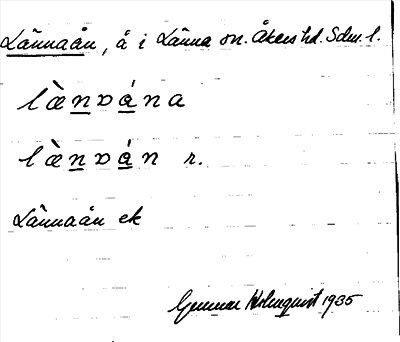 Lännaån, å i Länna sn. Åkers hd. Sdm. l.
læ̀n̲vá̲na
læ̀n̲vá̲n r.
Lännaån ek
Gunnar Holmquist 1935